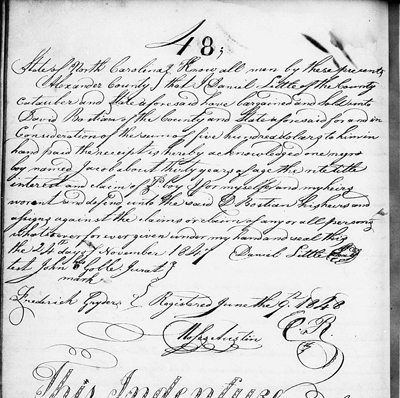 48;
State of North Carolina } Know all men by these presents
Alexander County } that I Daniel Little of the County
Catawber and State aforesaid have bargained and sold unto
David Bostian of the County and State aforesaid for and in
Consideration of the sum of five hundred dolars to him in
hand paid the receipt is hereby acknowledged one negro
boy named Jacob about thirty years of age the rite title
interest and claim of Sd boy I for myself and my heirs
worent and defend unto the said D Bostian his hers and
asigns against the claims or claim of any or all persons
whatsoever for ever given under my hand and seal this
the 24th day of November 1847 Daniel Little
test John Goble Jurat
mark
Frederick Registered June the 9th 1848
Austin C. R.
This Indenture